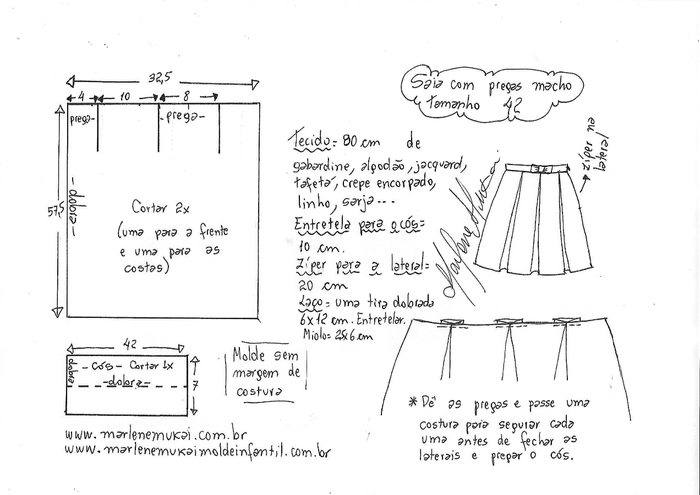 Saia com pregas macho
tamanho 42
32,5
4
10
8
prega
prega
57,5
dobra
Cortar 2x
(uma para a frente
e uma para as
costas)
Tecido = 80 cm de
gabardine, algodão, jacquard,
tafetá, crepe encorpado,
linho, sarja ---
Entretela para o cós =
10 cm.
Zíper para a lateral =
20 cm
Laço = uma tira dobrada
6x12 cm. Entretelar.
Miolo = 25x6 cm
Marlene Mukai
zíper na
lateral
42
dobra
- cós - Cortar 1x
- dobra -
7
Molde sem
margem de
costura
* Dê as pregas e passe uma
costura para segurar cada
uma antes de fechar as
laterais e pregar o cós.
www.marlenemukai.com.br
www.marlenemukaimoldeinfantil.com.br